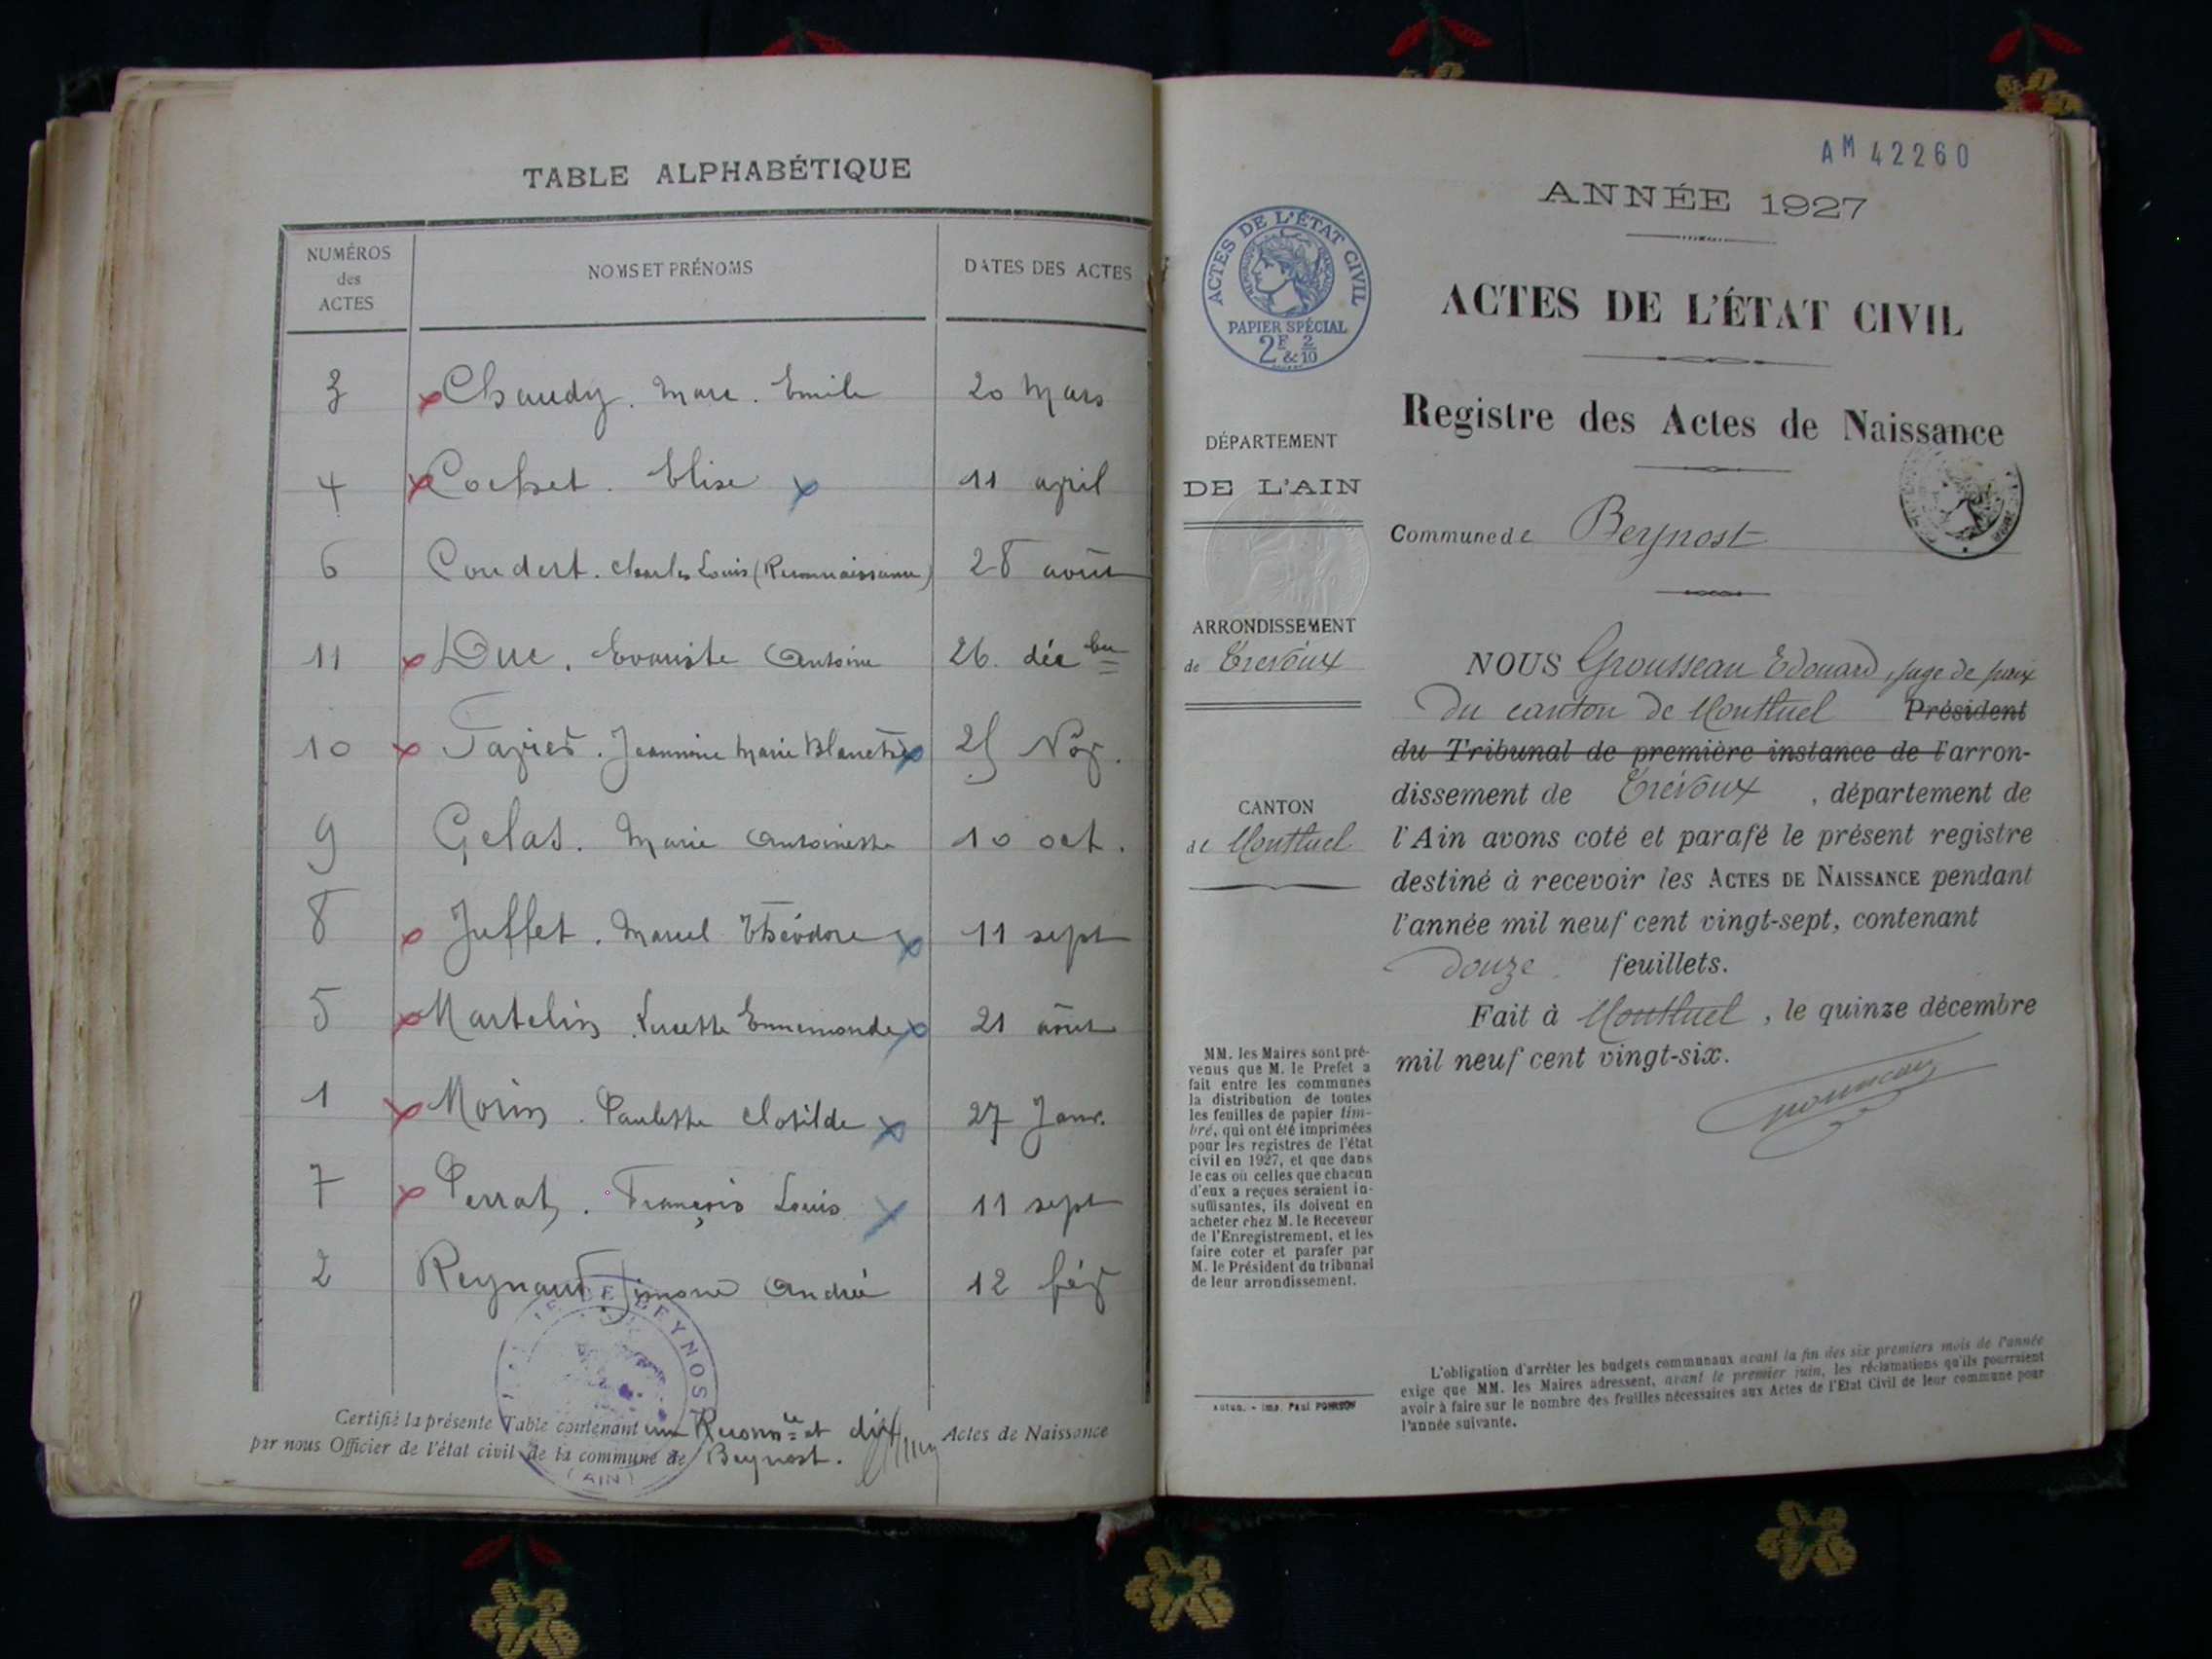 TABLE ALPHABÉTIQUE
NUMÉROS des ACTES NOMS ET PRÉNOMS DATES DES ACTES
3 Chaudy. Marc. Emile 20 Mars
4 Cochet. Elise 11 april
6 Coudert. Charles Louis (Reconnaissance) 28 août
11 Duc. Evariste Antoine 26. déc bre
10 Jeannine Marie Blanche 25 Nov.
9 Gelas. Marie Antoinette 10 oct.
8 Juffet. Marcel Théodore 11 sept
5 Martelin Lucette Ennemonde 21 août
1 Morin. Paulette Clotilde 27 Janv.
7 Perrat. François Louis 11 sept
2 Reynaud Simone Andrée 12 fév
Certifié la présente Table contenant une Reconn ce et dix Actes de Naissance
par nous Officier de l'état civil de la commune de Beynost.
BEYNOST
(AIN)
AM 42260
ANNÉE 1927
ACTES DE L'ÉTAT CIVIL
RÉPUBLIQUE FRANÇAISE
PAPIER SPÉCIAL
2F & 2/10
ACTES DE L'ÉTAT CIVIL
Registre des Actes de Naissance
DÉPARTEMENT
DE L'AIN
Commune de Beynost
ARRONDISSEMENT
de Trévoux
CANTON
de Montluel
NOUS Grousseau Edouard, juge de paix
du canton de Montluel Président
du Tribunal de première instance de l'arron-
dissement de Trévoux, département de
l'Ain avons coté et parafé le présent registre
destiné à recevoir les ACTES DE NAISSANCE pendant
l'année mil neuf cent vingt-sept, contenant
douze feuillets.
Fait à Montluel, le quinze décembre
mil neuf cent vingt-six.
MM. les Maires sont pré-
venus que M. le Préfet a
fait entre les communes
la distribution de toutes
les feuilles de papier tim-
bré, qui ont été imprimées
pour les registres de l'état
civil en 1927, et que dans
le cas où celles que chacun
d'eux a reçues seraient in-
suffisantes, ils doivent en
acheter chez M. le Receveur
de l'Enregistrement, et les
faire coter et parafer par
M. le Président du tribunal
de leur arrondissement.
Autun. - Imp. Paul
L'obligation d'arrêter les budgets communaux avant la fin des six premiers mois de l'année
exige que MM. les Maires adressent, avant le premier juin, les réclamations qu'ils pourraient
avoir à faire sur le nombre des feuilles nécessaires aux Actes de l'Etat Civil de leur commune pour
l'année suivante.